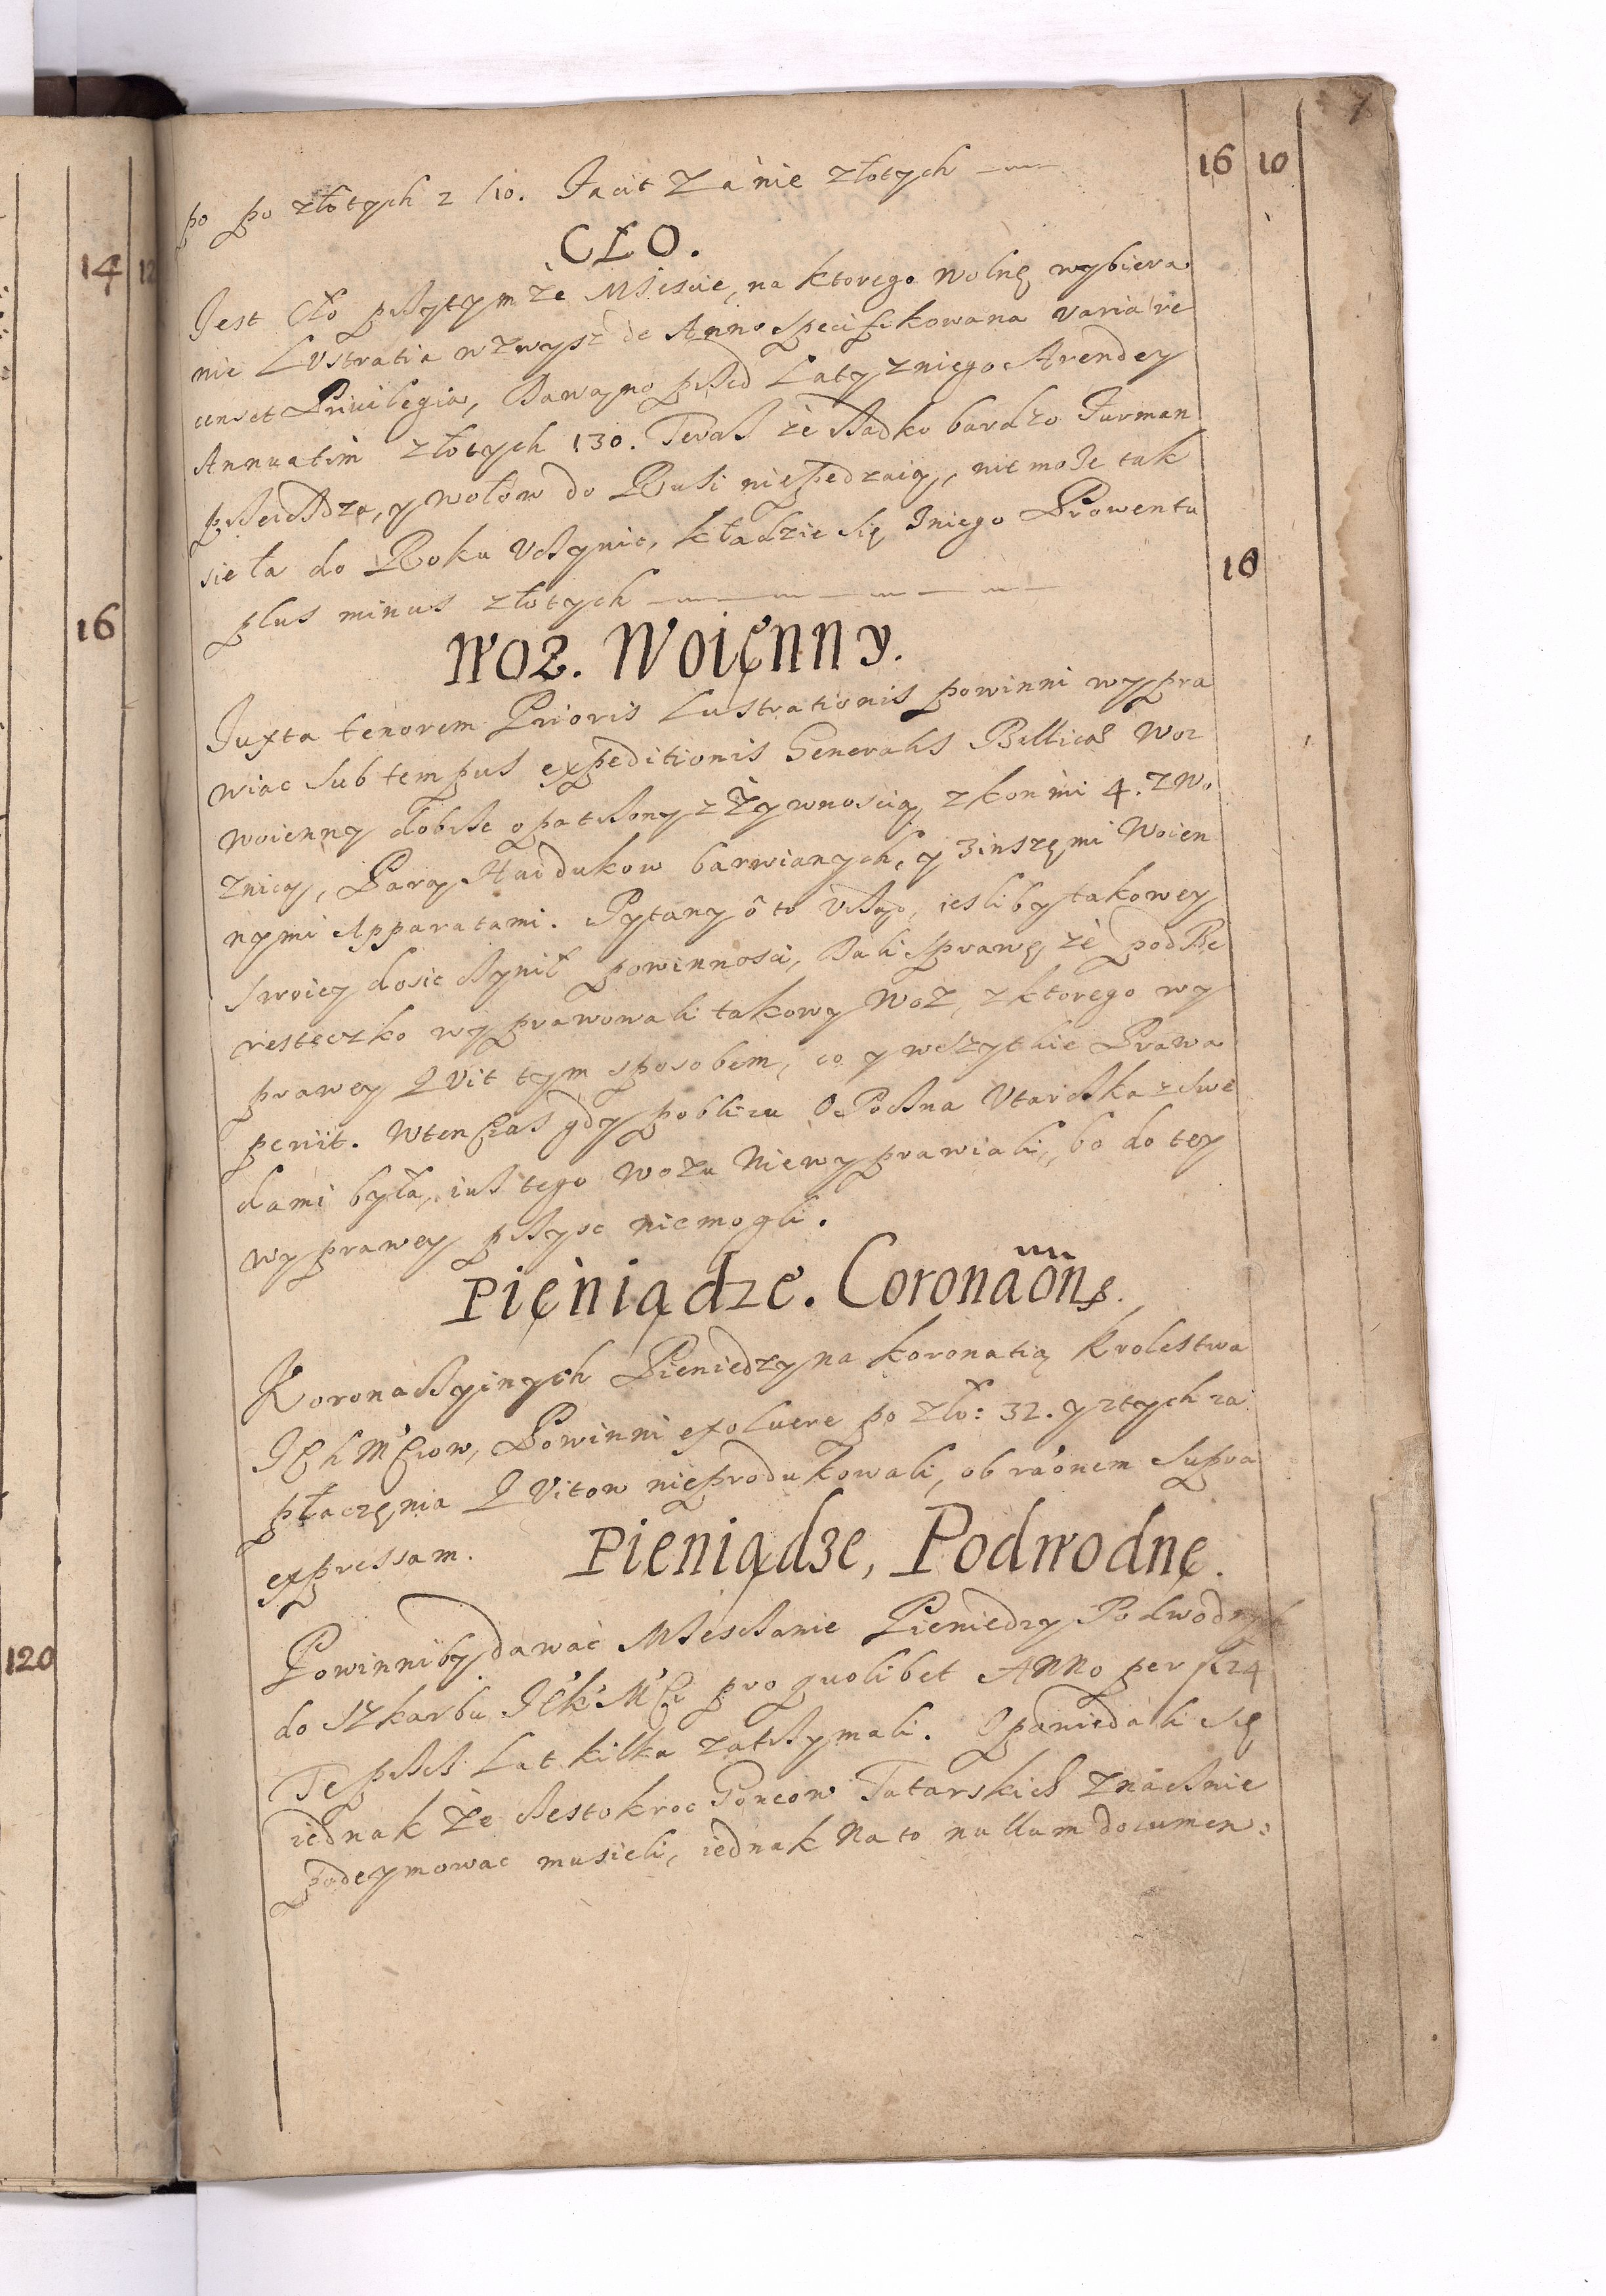 7
po po złotych 2 /10. Facit Zanie złotych 16 10
CŁO.
Jest Cło przytymże Miescie, na ktorego wolnę wybiera
nie Lustratia wzwysz de Anno specifikowana varia re
censet Privilegia, Dawano przed Laty zniego Arendey
Annuatim złotych 130. Teraz że rzadko bardzo Furman
przeiedza, y wołow do Rusi niepedzaią, nie może tak
sieła do Roku uczynic, kładzie się zniego Prowentu
plus minus złotych 10
Woz. Woienny.
Juxta tenorem Prioris Lustrationis powinni wypra
wiac sub tempus expeditionis Generalis Bellicae Woz
woienny dobrze opatrzony z Żywnoscią, z konmi 4. z Wo
znicą, Parą Haidukow barwianych, y zinszemi Woien
nymi Apparatami. Pytany o to Urząd, iesliby takowey
swoiey dosic czynił powinnosci, Dali sprawę że pod Be
resteczko wyprawowali takowy Woz, z ktorego wy
prawey Qvit tym sposobem, co y wszytkie Prawa
periit. Wten czas gdy poblizu Opoczna Utarczka z Swe
dami była, iusz tego wozu niewyprawiali, bo do tey
wyprawey przysc niemogli.
Pieniądze. Coronaōns.
Koronaczyinych Pieniedzy na koronatią krolestwa
Powinni exoluere po zło: 32. y ztych za
płaczenia Qvitow nieprodukowali, ob raōnem supra
expressam.
Pieniądze, Podwodne.
Powinniby dawac Miesczanie Pieniedzy Podwodnych
do Szkarbu pro quolibet Anno per fl 24
Te przez Lat kilka zatrzymali. Opowiedali się
iednak że czestokroc Goncow Tatarskich znacznie
podeymowac musieli, iednak na to nullum documen:
14 12
16
120